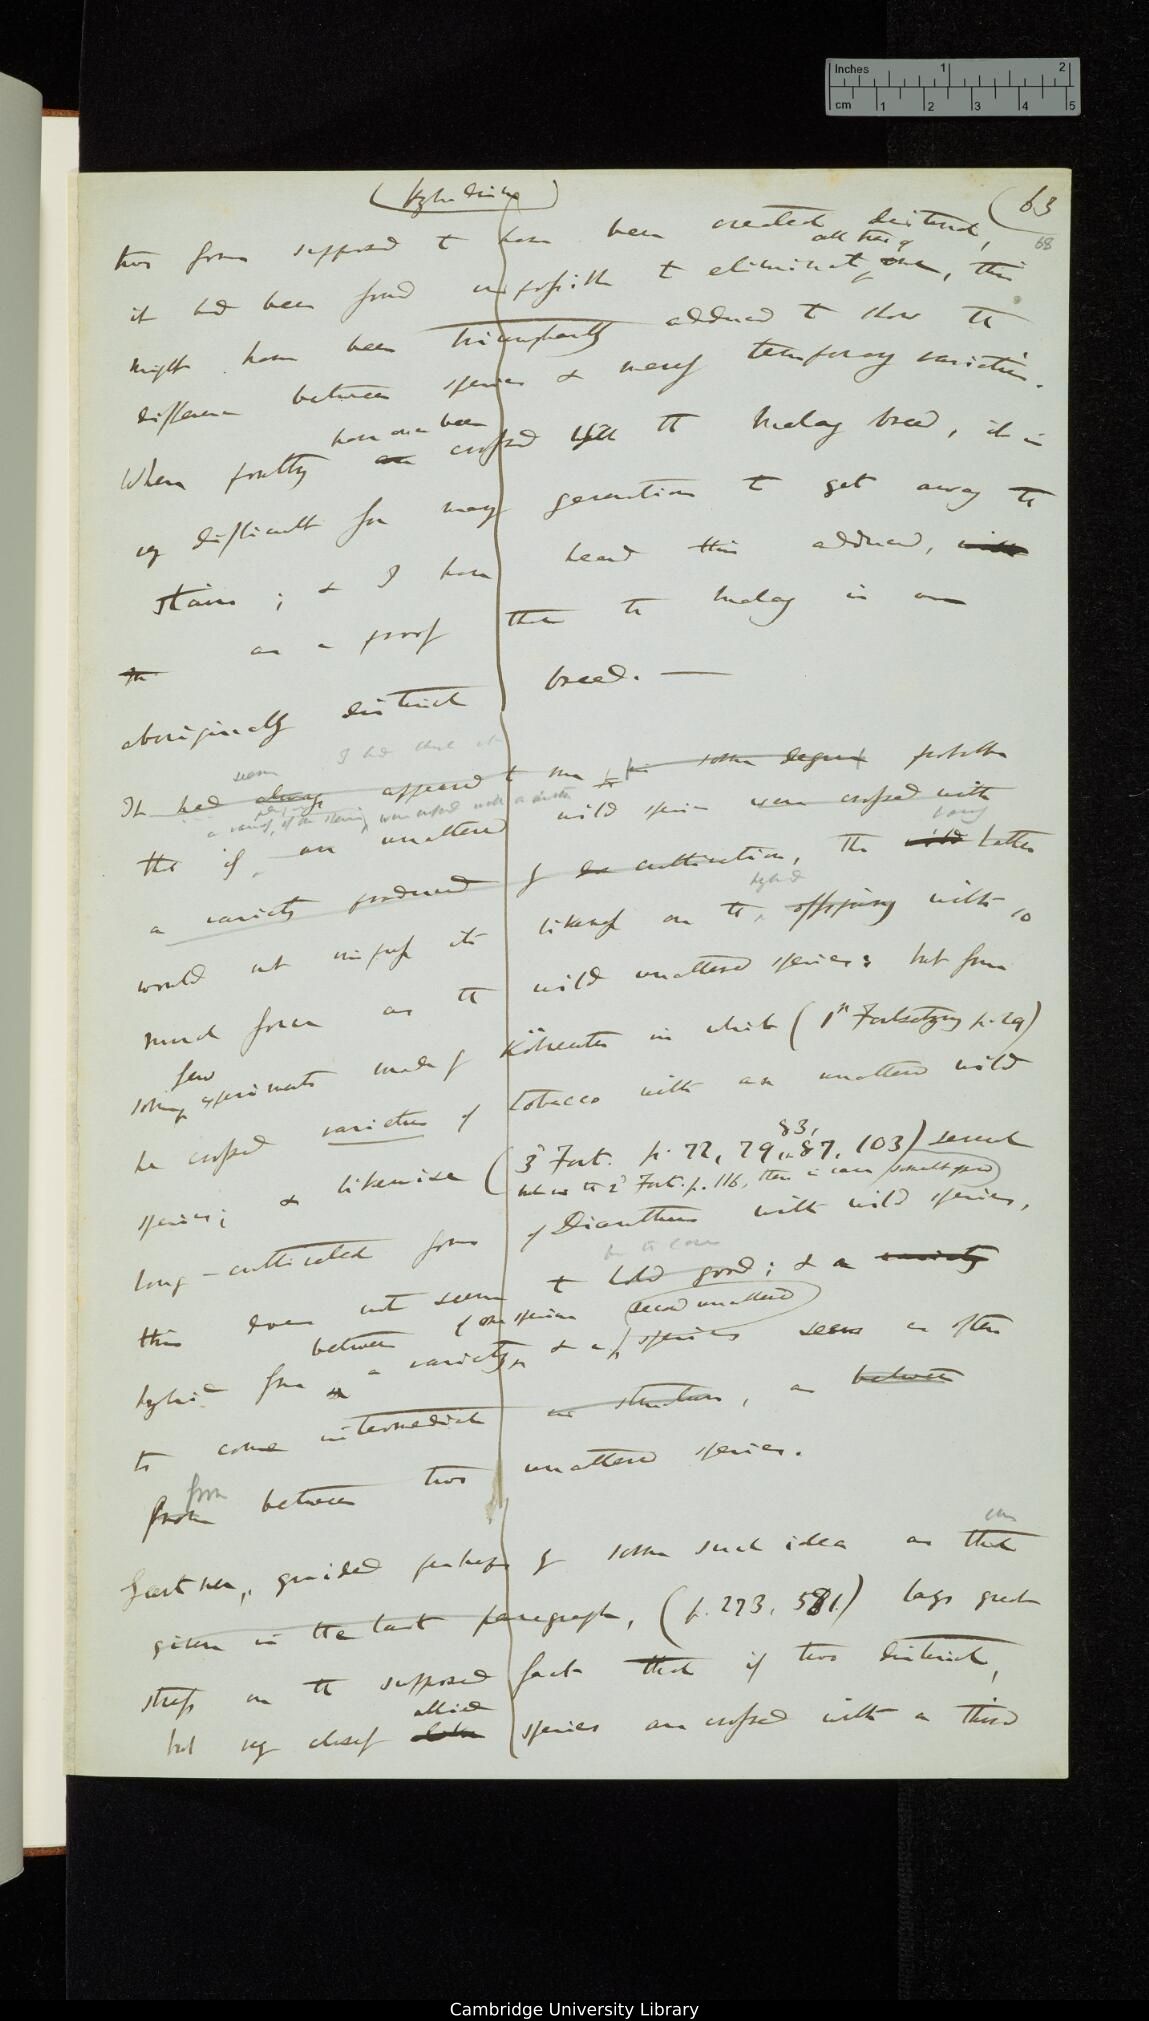 Inches 1 2
cm 1 2 3 4 5
(Hybridism) (63
68
two forms supposed to have been created distinct,
all trace of
it had been found impossible to eliminate one, this
might have been triumphantly adduced to show the
difference between species & merely temporary varieties.
have once been
When poultry are crossed with the Malay breed, it is
very difficult for many generations to get away the
stain; & I have heard this adduced, with
the as a proof that the Malay is an
aboriginally distinct breed. —
seem I had thought it
It had always appeared to me in some degree probable
a variety, of one species, were crossed with a distinct
that if an unaltered wild species were crossed with
a variety produced by cultivation, the wild latter
hybrid
would not impress its likeness on the offspring with so
much force as the wild unaltered species: but from
few
some experiments made by Kölreuter in which (1st Fortsetzung p. 29)
he crossed varieties of tobacco with an unaltered wild
83,
species; & likewise (3d Fort. p. 72, 79, 87, 103) several
but in the 2d Fort. p. 116, there is case
long-cultivated forms of Dianthus with wild species,
be the case
this does not seem to hold good; & a variety
between of one species second unaltered
hybrid from a variety & a species seems as often
to come intermediate in structure, as between
from
from between two unaltered species.
Gærtner, guided perhaps by some such idea as that
given in the last paragraph, (p. 273, 581.) lays great
stress on the supposed fact that if two distinct,
allied
but very closely like species are crossed with a third
Cambridge University Library